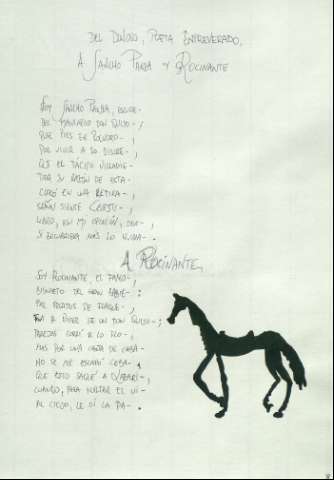 DEL DONOSO, POETA ENTREVERADO,
A SANCHO PANZA Y ROCINANTE
SOY SANCHO PANZA, ESCUDE-,
DEL MANCHEGO DON QUIJO-;
PUSE PIES EN POLVORO-,
POR VIVIR A LO DISCRE-;
QUE EL TÁCITO VILLADIE-
TODA SU RAZÓN DE ESTA-
CIFRÓ EN UNA RETIRA-,
SEGÚN SIENTE CELESTI-,
LIBRO, EN MI OPINIÓN, DIVI-,
SI ENCUBRIERA MÁS LO HUMA-.
A ROCINANTE,
SOY ROCINANTE, EL FAMO-,
BISNIETO DEL GRAN BABIE-:
POR PECADOS DE FLAQUE-,
FUI A PODER DE UN DON QUIJO-;
PAREJAS CORRÍ A LO FLO-;
MAS POR UÑA DE CABA-
NO SE ME ESCAPÓ CEBA-,
QUE ESTO SAQUÉ A LAZARI-,
CUANDO, PARA HURTAR EL VI-
AL CIEGO, LE DI LA PA-.